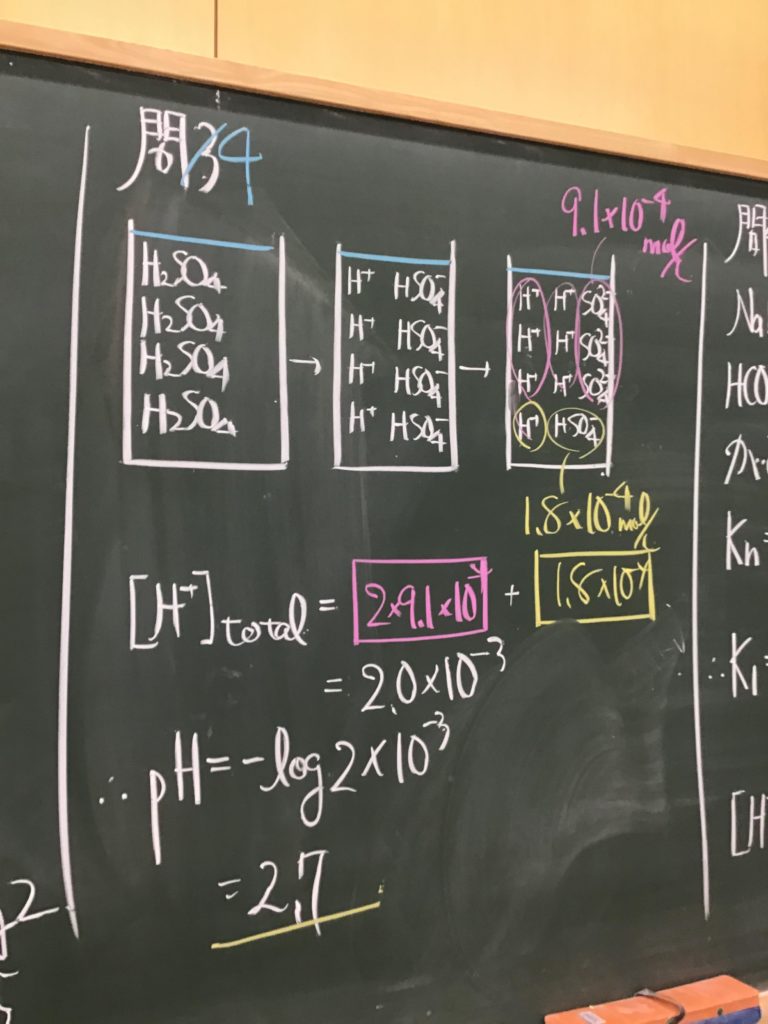 問34
9.1×10⁻⁴
mol/L
H₂SO₄
H₂SO₄
H₂SO₄
H₂SO₄
→
H⁺ HSO₄⁻
H⁺ HSO₄⁻
H⁺ HSO₄⁻
H⁺ HSO₄⁻
→
H⁺ H⁺ SO₄²⁻
H⁺ H⁺ SO₄²⁻
H⁺ H⁺ SO₄²⁻
H⁺ HSO₄⁻
1.8×10⁻⁴ mol/L
[H⁺]total = 2×9.1×10⁻⁴ + 1.8×10⁻⁴
= 2.0×10⁻³
∴ pH=-log2×10⁻³
=2.7
問
Na
HCO
Kh=
∴K₁=
[H⁺
2